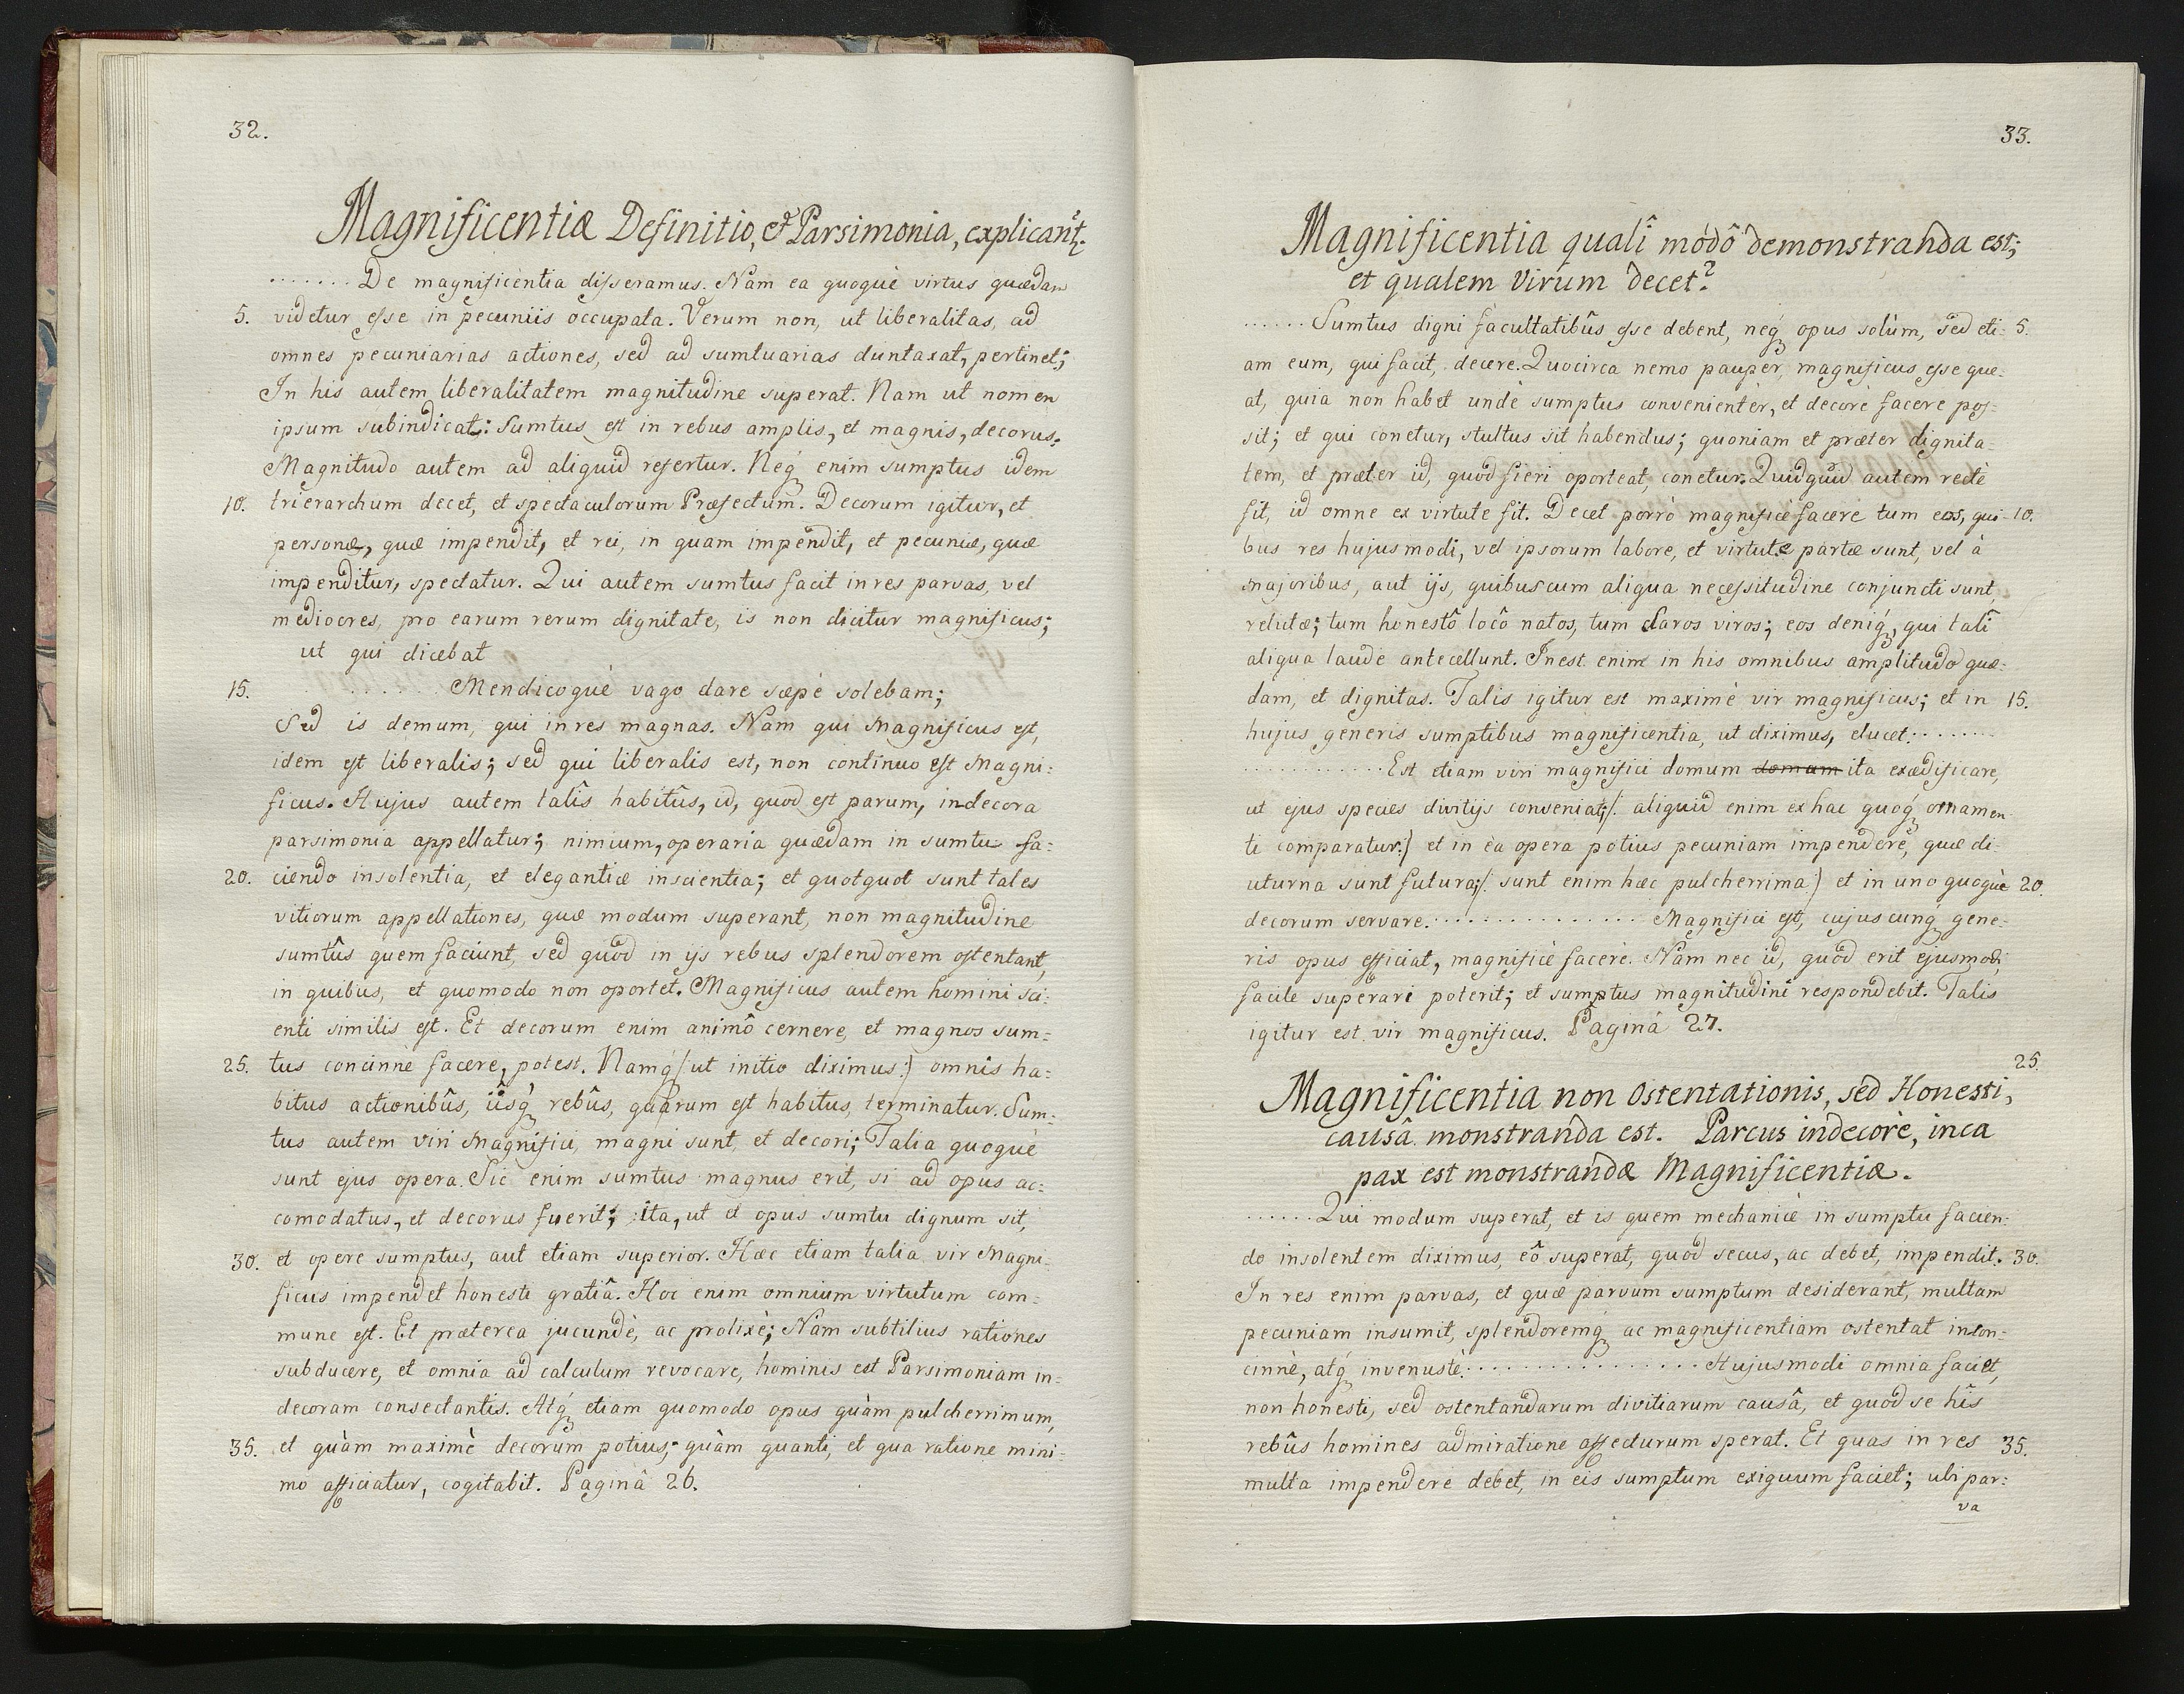 32.
Magnificentiæ Definitio, et Parsimonia, explicant̃.
....... De magnificentia disseramus. Nam ea quoquè virtus quædam
5. videtur esse in pecuniis occupata. Verum non, ut liberalitas, ad
omnes pecuniarias actiones, sed ad sumtuarias duntaxat, pertinet;
In his autem liberalitatem magnitudine superat. Nam ut nomen
ipsum subindicat: Sumtus est in rebus amplis, et magnis, decorus.
Magnitudo autem ad aliquid refertur. Neq́ enim sumptus idem
10. trierarchum decet, et spectaculorum Præfectum. Decorum igitur, et
personæ, quæ impendit, et rei, in quam impendit, et pecuniæ, quæ
impenditur, spectatur. Qui autem sumtus facit in res parvas, vel
mediocres, pro earum rerum dignitate, is non dicitur magnificus;
ut qui dicebat
15. ........ Mendicoquè vago dare sæpè solebam;
Sed is demum, qui in res magnas. Nam qui Magnificus est,
idem est liberalis; sed qui liberalis est, non continuo est Magni=
ficus. Hujus autem talis habitûs, id, quod est parum, indecora
parsimonia appellatur; nimium, operaria quædam in sumtu fa=
20. ciendo insolentia, et elegantiæ inscientia; et quotquot sunt tales
vitiorum appellationes, quæ modum superant, non magnitudine
sumtûs quem faciunt, sed quòd in ijs rebus splendorem ostentant,
in quibus, et quomodo non oportet. Magnificus autem homini sci=
enti similis est. Et decorum enim animô cernere, et magnos sum=
25. tus concinnè facere, potest. Namq́ (ut initio diximus:) omnis ha=
bitus actionibûs, iîsq́ rebûs, quarum est habitus, terminatur. Sum=
tus autem viri Magnifici, magni sunt, et decori; Talia quoquè
sunt ejus opera. Sic enim sumtus magnus erit, si ad opus ac=
comodatus, et decorus fuerit; ita, ut et opus sumtu dignum sit,
30. et opere sumptus, aut etiam superior. Hæc etiam talia vir Magni=
ficus impendet honesti gratiâ. Hoc enim omnium virtutum com=
mune est. Et præterea jucundè, ac prolixè; Nam subtilius rationes
subducere, et omnia ad calculum revocare, hominis est Parsimoniam in=
decoram consectantis. Atq́ etiam quomodo opus quàm pulcherrimum,
35. et quàm maximè decorum potius, quàm quanti, et qua ratione mini=
mo efficiatur, cogitabit. Paginâ 26.
33.
Magnificentia qualî módô demonstranda est;
et qualem Virum decet?
...... Sumtus digni facultatibûs esse debent, neq́ opus solùm, sed eti= 5.
am eum, qui facit, decere. Quocirca nemo pauper, magnificus esse que=
at, quia non habet undè sumptus convenientèr, et decorè facere pos=
sit; et qui conetur, stultus sit habendus; quoniam et præter dignita=
tem, et præter id, quòd fieri oporteat, conetur. Quidquid autem rectè
fit, id omne ex virtute fit. Decet porrò magnificè facere tum eos, qui= 10.
bus res hujusmodi, vel ipsorum labore, et virtute partæ sunt, vel à
majoribus, aut ijs, quibuscum aliqua necessitudine conjuncti sunt,
relictæ; tum honestô locô natos, tum claros viros; eos deniq́, qui talî
aliqua laude antecellunt. Inest enim in his omnibus amplitudo quæ=
dam, et dignitas. Talis igitur est maximè vir magnificus; et in 15.
hujus generis sumptibus magnificentia, ut diximus, elucet. .......
............ Est etiam viri magnifici domum domum ita exædificare,
ut ejus species divitijs conveniat; (: aliquid enim ex hac quoq́ ornamen=
ti comparatur:) et in ea opera potius pecuniam impendere, quæ di=
uturna sunt futura; (: sunt enim hæc pulcherrima:) et in uno quoquè 20.
decorum servare. ............... Magnifici est, cujuscunq́ gene=
ris opus efficiat, magnificè facere. Nam nec id, quod erit ejusmodi,
facile superari poterit; et sumptus magnitudini respondebit. Talis
igitur est vir magnificus. Paginâ 27.
25.
Magnificentia non Ostentationis, sed Honesti,
causâ monstranda est. Parcus indecorè, inca
pax est monstrandæ Magnificentiæ.
...... Qui modum superat, et is quem mechanicè in sumptu facien=
do insolentem diximus, eô superat, quòd secus, ac debet, impendit. 30.
In res enim parvas, et quæ parvum sumptum desiderant, multam
pecuniam insumit, splendoremq́ ac magnificentiam ostentat incon=
cinnè, atq́ invenustè. ................ Hujusmodi omnia faciet,
non honesti, sed ostentandarum divitiarum causâ, et quòd se hîs
rebûs homines admiratione affecturum sperat. Et quas in res 35.
multa impendere debet, in eis sumptum exiguum faciet; ubi par=
va